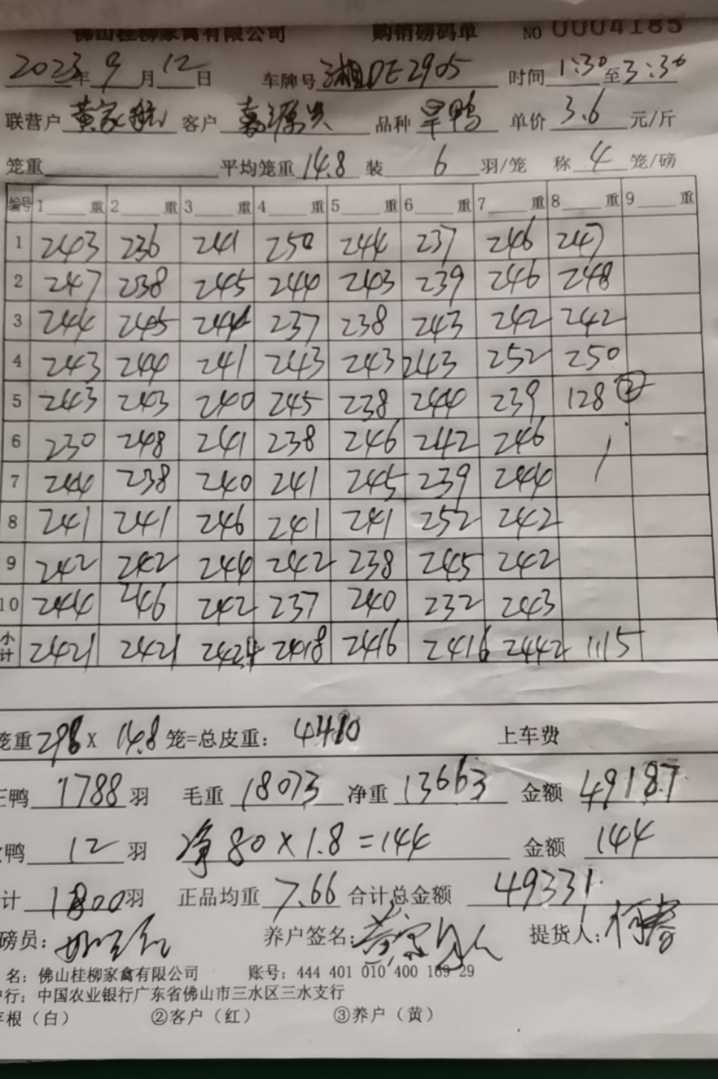 佛山桂柳家禽有限公司 购销磅码单 NO 0004185
2023年9月12日 车牌号 湘DE2905 时间 1:30至3:30
联营户 黄家 客户 品种 旱鸭 单价 3.6 元/斤
笼重 平均笼重 14.8 装 6 羽/笼 称 4 笼/磅
编号 1 重 2 重 3 重 4 重 5 重 6 重 7 重 8 重 9 重
1 243 236 241 250 244 237 246 247
2 247 238 245 244 243 239 246 248
3 244 245 244 237 238 243 242 242
4 243 244 241 243 243 243 252 250
5 243 243 240 245 238 244 239 128 ②
6 230 248 241 238 246 242 246
7 244 238 240 241 245 239 244
8 241 241 246 241 241 252 242
9 242 242 244 242 238 245 242
10 244 246 242 237 240 232 243
小计 2421 2421 2424 2418 2416 2416 2442 1115
笼重 298 X 14.8 笼=总皮重: 4410 上车费
正鸭 1788 羽 毛重 18073 净重 13663 金额 49187
鸭 12 羽 净 80 X 1.8 = 144 金额 144
计 1800 羽 正品均重 7.66 合计总金额 49331.
磅员: 养户签名: 提货人:
名: 佛山桂柳家禽有限公司 账号: 444 401 010 400 169 29
户行: 中国农业银行广东省佛山市三水区三水支行
存根（白） ②客户（红） ③养户（黄）